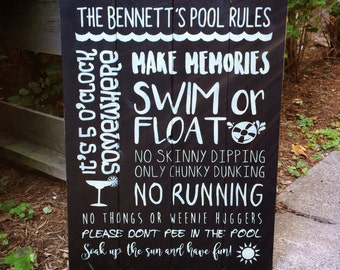 THE BENNETT'S POOL RULES
IT'S 5 O'CLOCK
SOMEWHERE
MAKE MEMORIES
SWIM or
FLOAT
NO SKINNY DIPPING
ONLY CHUNKY DUNKING
NO RUNNING
NO THONGS OR WEENIE HUGGERS
PLEASE DONT PEE IN THE POOL
Soak up the sun and have fun!